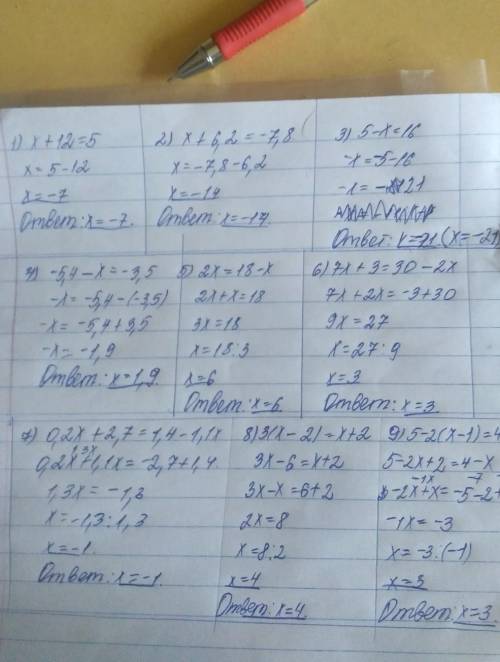 1) x+12=5
x=5-12
x=-7
Ответ: x=-7.
2) x+6,2=-7,8
x=-7,8-6,2
x=-14
Ответ: x=-14.
3) 5-x=16
-x=-5-16
-x=-21
Ответ: x=21 (x=-21)
4) -5,4-x=-3,5
-x=-5,4-(-3,5)
-x=-5,4+3,5
-x=-1,9
Ответ: x=1,9.
5) 2x=18-x
2x+x=18
3x=18
x=18:3
x=6
Ответ: x=6.
6) 7x+3=30-2x
7x+2x=-3+30
9x=27
x=27:9
x=3
Ответ: x=3.
7) 0,2x+2,7=1,4-1,1x
1,3x
0,2x+1,1x=-2,7+1,4.
1,3x=-1,3
x=-1,3:1,3
x=-1.
Ответ: x=-1.
8) 3(x-2)=x+2
3x-6=x+2
3x-x=6+2
2x=8
x=8:2
x=4
Ответ: x=4.
9) 5-2(x-1)=4
5-2x+2=4-x
-1x -7
-2x+x=-5-2
-1x=-3
x=-3:(-1)
x=3
Ответ: x=3.